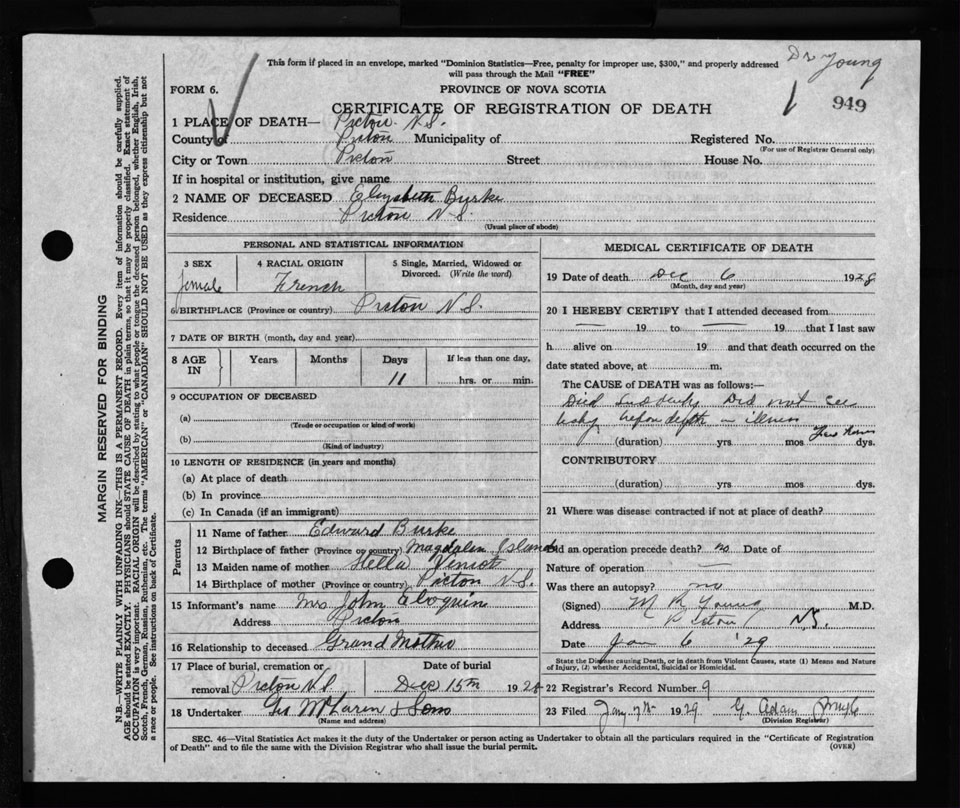 Dr Young
This form if placed in an envelope, marked "Dominion Statistics—Free, penalty for improper use, $300," and properly addressed
will pass through the Mail "FREE"
FORM 6.
PROVINCE OF NOVA SCOTIA
949
CERTIFICATE OF REGISTRATION OF DEATH
1 PLACE OF DEATH— Pictou N.S.
County of Pictou Municipality of Registered No.
(For use of Registrar General only)
City or Town Pictou Street House No.
If in hospital or institution, give name
2 NAME OF DECEASED Elizabeth Burke
Residence Pictou N.S.
(Usual place of abode)
MARGIN RESERVED FOR BINDING
N.B.—WRITE PLAINLY WITH UNFADING INK—THIS IS A PERMANENT RECORD. Every item of information should be carefully supplied.
AGE should be stated EXACTLY. PHYSICIANS should STATE CAUSE OF DEATH in plain terms, so that it may be properly classified. Exact statement of
OCCUPATION is very important. RACIAL ORIGIN will be described by stating to what people or tongue the deceased person belonged, whether English, Irish,
Scotch, French, German, Russian, Ruthenian, etc. The terms "AMERICAN" or "CANADIAN" SHOULD NOT BE USED as they express citizenship but not
a race or people. See instructions on back of Certificate.
PERSONAL AND STATISTICAL INFORMATION
3 SEX
Female
4 RACIAL ORIGIN
French
5 Single, Married, Widowed or
Divorced. (Write the word)
6 BIRTHPLACE (Province or country) Pictou N.S.
7 DATE OF BIRTH (month, day and year)
8 AGE IN
Years
Months
Days
11
If less than one day,
hrs. or min.
9 OCCUPATION OF DECEASED
(a)
(Trade or occupation or kind of work)
(b)
(Kind of industry)
10 LENGTH OF RESIDENCE (in years and months)
(a) At place of death
(b) In province
(c) In Canada (if an immigrant)
Parents
11 Name of father Edward Burke
12 Birthplace of father (Province or country) Magdalen Island
13 Maiden name of mother Stella Veniot
14 Birthplace of mother (Province or country) Pictou N.S.
15 Informant's name Mrs John Eloquin
Address Pictou
16 Relationship to deceased Grand Mother
17 Place of burial, cremation or
removal Pictou N.S.
Date of burial
Dec 15th 1928
18 Undertaker McLaren & Sons
(Name and address)
MEDICAL CERTIFICATE OF DEATH
19 Date of death Dec 6 1928
(Month, day and year)
20 I HEREBY CERTIFY that I attended deceased from
— 19 to — 19 that I last saw
h alive on 19 and that death occurred on the
date stated above, at m.
The CAUSE of DEATH was as follows:—
Died Suddenly Did not see
baby before death in illness
(duration) yrs mos dys.
CONTRIBUTORY
(duration) yrs mos dys.
21 Where was disease contracted if not at place of death?
Did an operation precede death? no Date of
Nature of operation —
Was there an autopsy? no
(Signed) M R Young M.D.
Address Pictou N.S.
Date Jan 6 '29
State the Disease causing Death, or in death from Violent Causes, state (1) Means and Nature
of Injury, (2) whether Accidental, Suicidal or Homicidal.
22 Registrar's Record Number 9
23 Filed Jany 7th 1929 G. Adam Smyth
(Division Registrar)
SEC. 46—Vital Statistics Act makes it the duty of the Undertaker or person acting as Undertaker to obtain all the particulars required in the "Certificate of Registration
of Death" and to file the same with the Division Registrar who shall issue the burial permit.
(OVER)